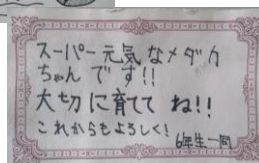 スーパー元気なメダカ
ちゃんです!!
大切に育ててね!!
これからもよろしく!
6年生一同